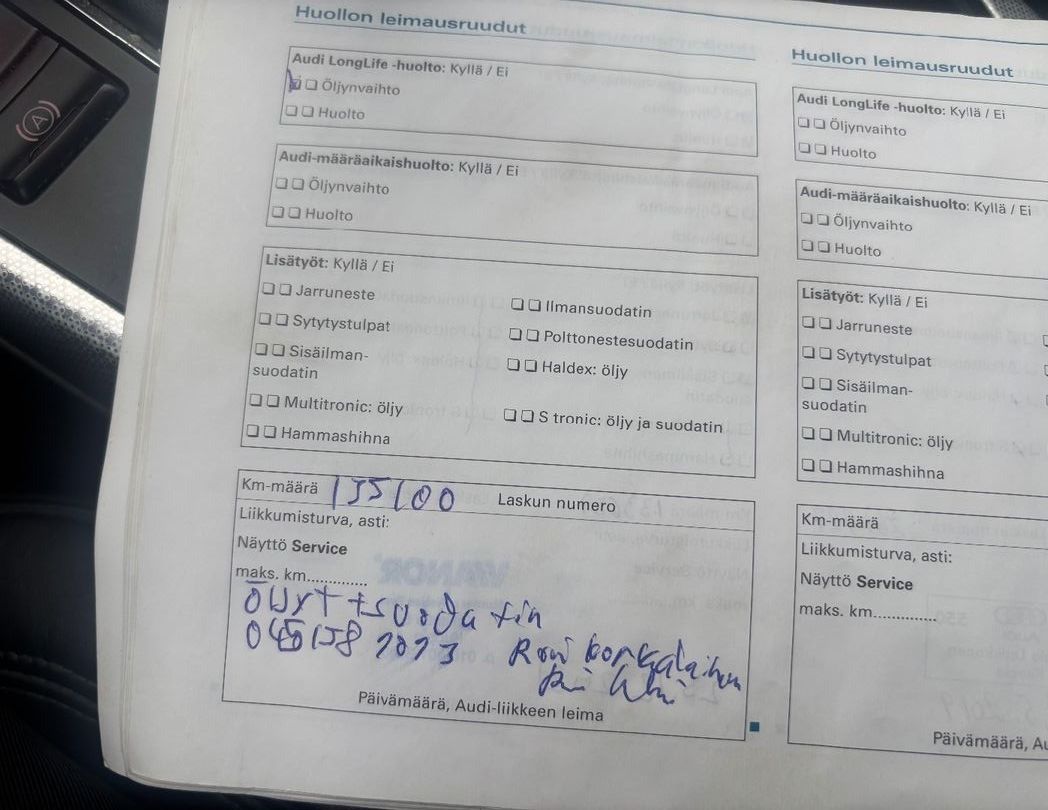 Huollon leimausruudut
Audi LongLife -huolto: Kyllä / Ei
Öljynvaihto
Huolto
Audi-määräaikaishuolto: Kyllä / Ei
Öljynvaihto
Huolto
Lisätyöt: Kyllä / Ei
Jarruneste
Sytytystulpat
Sisäilman-
suodatin
Multitronic: öljy
Hammashihna
Ilmansuodatin
Polttonestesuodatin
Haldex: öljy
S tronic: öljy ja suodatin
Km-määrä 135100 Laskun numero
Liikkumisturva, asti:
Näyttö Service
maks. km..............
Päivämäärä, Audi-liikkeen leima
Huollon leimausruudut
Audi LongLife -huolto: Kyllä / Ei
Öljynvaihto
Huolto
Audi-määräaikaishuolto: Kyllä / Ei
Öljynvaihto
Huolto
Lisätyöt: Kyllä / Ei
Jarruneste
Sytytystulpat
Sisäilman-
suodatin
Multitronic: öljy
Hammashihna
Km-määrä
Liikkumisturva, asti:
Näyttö Service
maks. km..............
Päivämäärä, Au